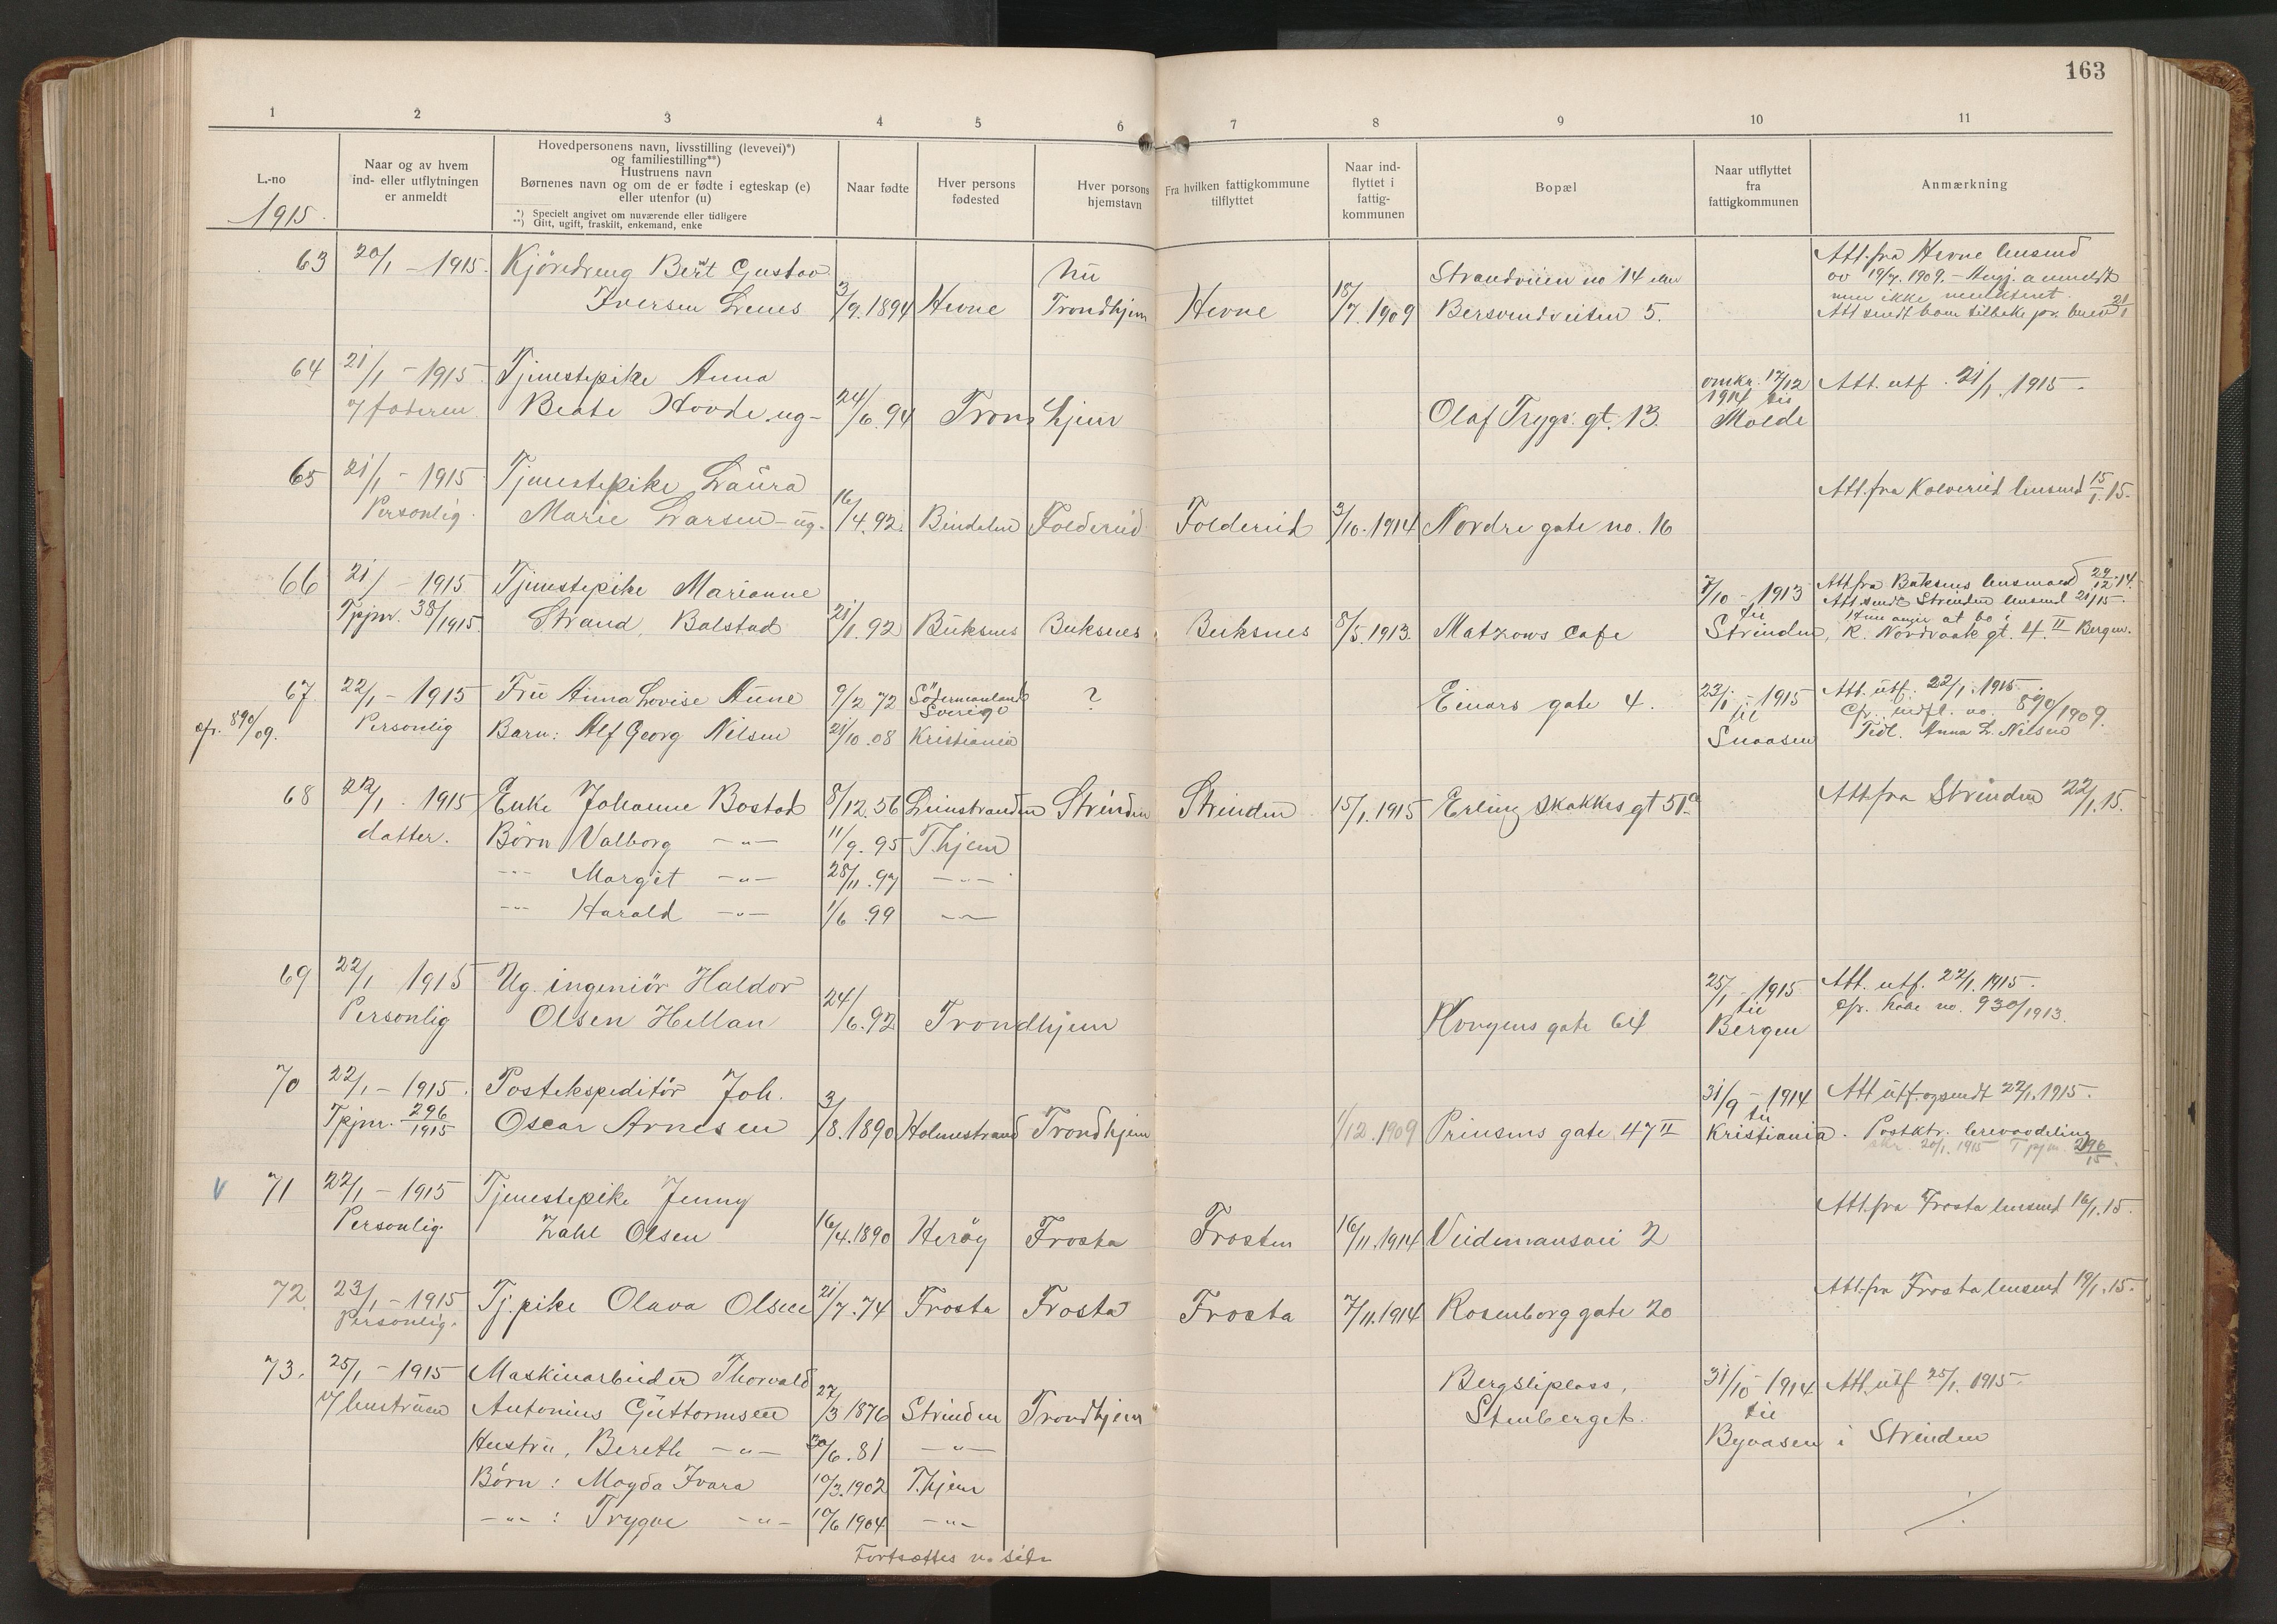 163
1 2 3 4 5 6 7 8 9 10 11
L.-no
1915.
Naar og av hvem
ind- eller utflytningen
er anmeldt
Hovedpersonens navn, livsstilling (levevei)*)
og familiestilling**)
Hustruens navn
Børnenes navn og om de er fødte i egteskap (e)
eller utenfor (u)
*) Specielt angivet om nuværende eller tidligere
**) Gift, ugift, fraskilt, enkemand, enke
Naar fødte
Hver persons
fødested
Hver porsons
hjemstavn
Fra hvilken fattigkommune
tilflyttet
Naar ind-
flyttet i
fattig-
kommunen
Bopæl
Naar utflyttet
fra
fattigkommunen
Anmærkning
63 20/1 - 1915. Kjøredreng Bernt Gustav Nu Strandveien no 14 Att. fra Hevne lensmd
Iversen Lenes 3/9. 1894 Hevne Trondhjem Hevne 18/7. 1909 Bersvendveiten 5. av 19/7. 1909. -
ikke
Att sendt ham tilbake pr. brev 21/1
64 21/1 - 1915. Tjenestepike Anna omkr. 12/12 Att. utf. 21/1. 1915.
v/ faderen Beate Hovde ug- 24/6. 94 Trondhjem Olaf Trygv. gt. 13. 1914 til
Molde
65 21/1 - 1915 Tjenestepike Laura Att. fra Kolvereid lensmd 15/1. 15.
Personlig. Marie Larsen - ug. 16/4. 92. Bindalen Foldereid Foldereid 3/10. 1914 Nordre gate no. 16
66 21/ - 1915 Tjenestepike Marianne 7/10 - 1913 Att. fra Buksnes lensmand 29/12. 14.
Tpjnr. 38/1915. Strand, Balstad 21/1. 92 Buksnes Buksnes Buksnes 8/5. 1913. Matzows Cafe til Att. sendt Strinden lensmd 21/1 15.
Strinden, Hun angir at bo i
R. Nordraaks gt. 4. II Bergen.
67. 22/1 - 1915 Fru Anna Lovise Aune 9/2 72 Södermanland ? Einars gate 4. 23/1 - 1915 Att. utf. 22/1. 1915.
cfr. 890/09. Personlig Sverige til Cfr. indfl. no. 890/1909.
Barn: Alf Georg Nilsen 21/10. 08 Kristiania Snaasen Tidl. Anna L. Nilsen
68 22/1. 1915 Enke Johanne Bostad 8/12. 56 Leinstranden Strinden Strinden 15/1. 1915 Erling Skakkes gt 51a Att. fra Strinden 22/1. 15.
datter. Børn Valborg -"- 11/9. 95 T.hjem
-"- Margit -"- 28/11. 97 -"-
-"- Harald -"- 1/6. 99 -"-
69 22/1 1915 Ug. ingeniör Haldor 25/1 - 1915 Att. utf. 22/1. 1915.
Personlig Olsen Hellan 24/6. 92 Trondhjem Kongens gate 64 til cfr. no. 930/1913.
Bergen
70 22/1 - 1915. Postekspeditör Joh. 31/9 - 1914 Att utf. og sendt 22/1. 1915.
Tpjnr. 296/1915 Oscar Arnesen 3/8. 1890 Holmestrand Trondhjem 1/12. 1909 Prinsens gate 47 II til
Kristiania. Postktr. brevavdeling
skr. 20/1. 1915 Tpjnr. 296/15.
V 71 22/1 - 1915 Tjenestepike Jenny Att. fra Frosta lensmd 16/1. 15.
Personlig. Zahl Olsen 16/4. 1890 Herøy Frosta Frosten 16/11. 1914 Veidemansvei 2
72. 23/1 - 1915 Tj. pike Olava Olsen 21/7. 74 Frosta Frosta Frosta 7/11. 1914 Rosenborg gate 20 Att. fra Frosta lensmd 19/1. 15.
Personlig.
73. 25/1 - 1915 Maskinarbeider Thorvald Bergsliplass, 31/10 - 1914 Att. utf 25/1. 1915.
v/ hustruen Antonius Guttormsen 27/3 1876 Strinden Trondhjem Stenberget. til
Hustru, Bereth -"- 30/6. 81 -"- Byaasen i Strinden
Børn: Magda Ivara 10/3. 1902 T.hjem
-"- : Trygve -"- 10/6 1904 -"-
Fortsættes n. side